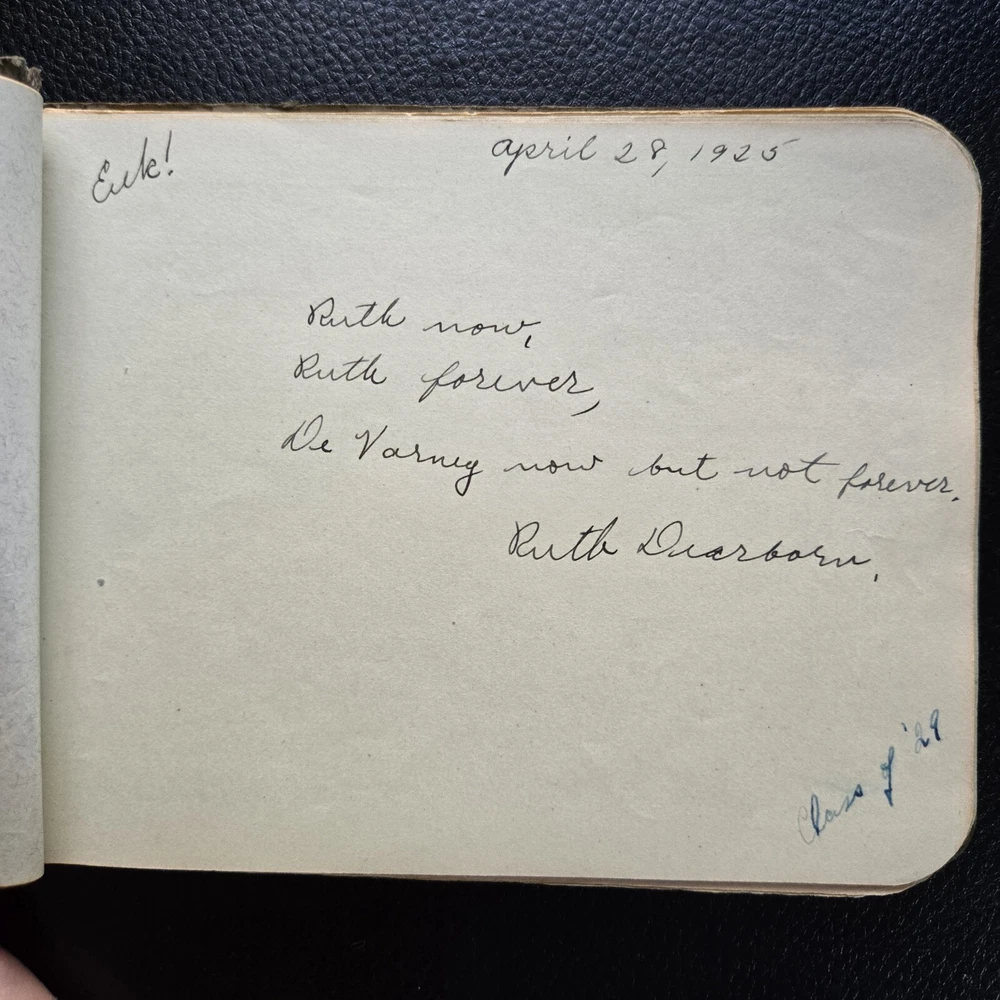 Eek!
April 28, 1925
Ruth now,
Ruth forever,
De Varney now but not forever.
Ruth Dearborn.
Class of '29